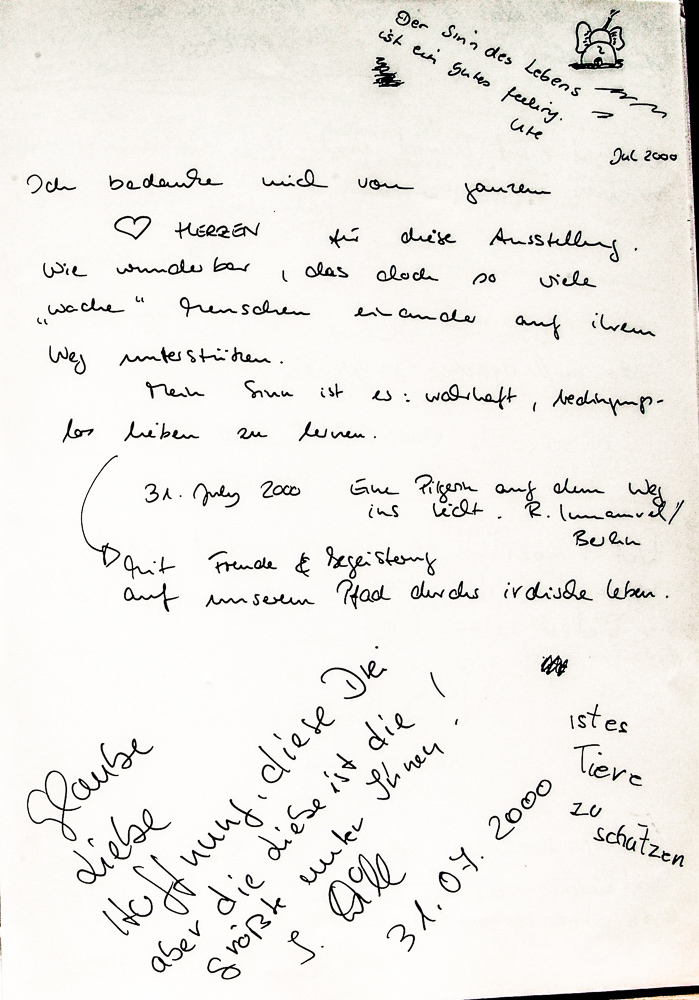 Der Sinn des Lebens
ist ein gutes feeling.
Ute
Jul 2000
Ich bedanke mich vom ganzem
HERZEN für diese Ausstellung.
Wie wunderbar, das doch so viele
„wache" Menschen einander auf ihrem
Weg unterstützen.
Mein Sinn ist es: wahrhaft, bedingungs-
los lieben zu lernen.
31. July 2000 Eine Pilgerin auf dem Weg
ins Licht. R. Immanuel/
Berlin
mit Freude & Begeisterung
auf unserem Pfad durchs irdische Leben.
Glaube
Liebe
Hoffnung, diese Drei
aber die Liebe ist die
größte unter Ihnen!
31.07.2000
ist es
Tiere
zu
schützen